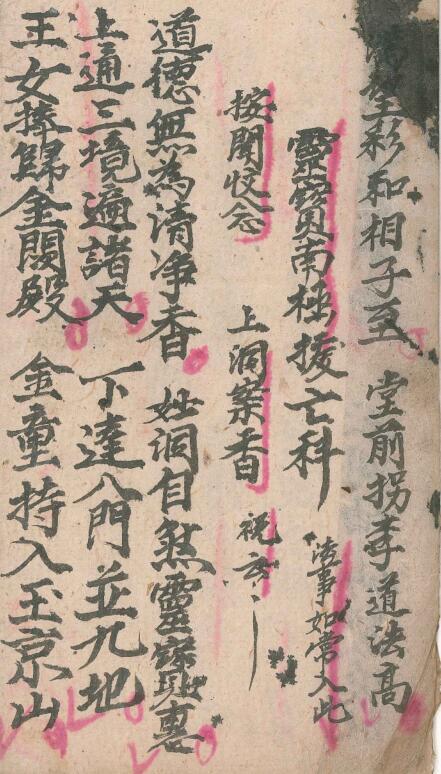 彩和相子至　堂前拐李道法高
靈寶南極拔亡科　法事如常入此
按開收念　上洞案香　祝云
道德無為清净香　妙洞自然靈寳
上通三境遍諸天　下達八門並九地
王女捧歸金闕殿　金童持入玉京山